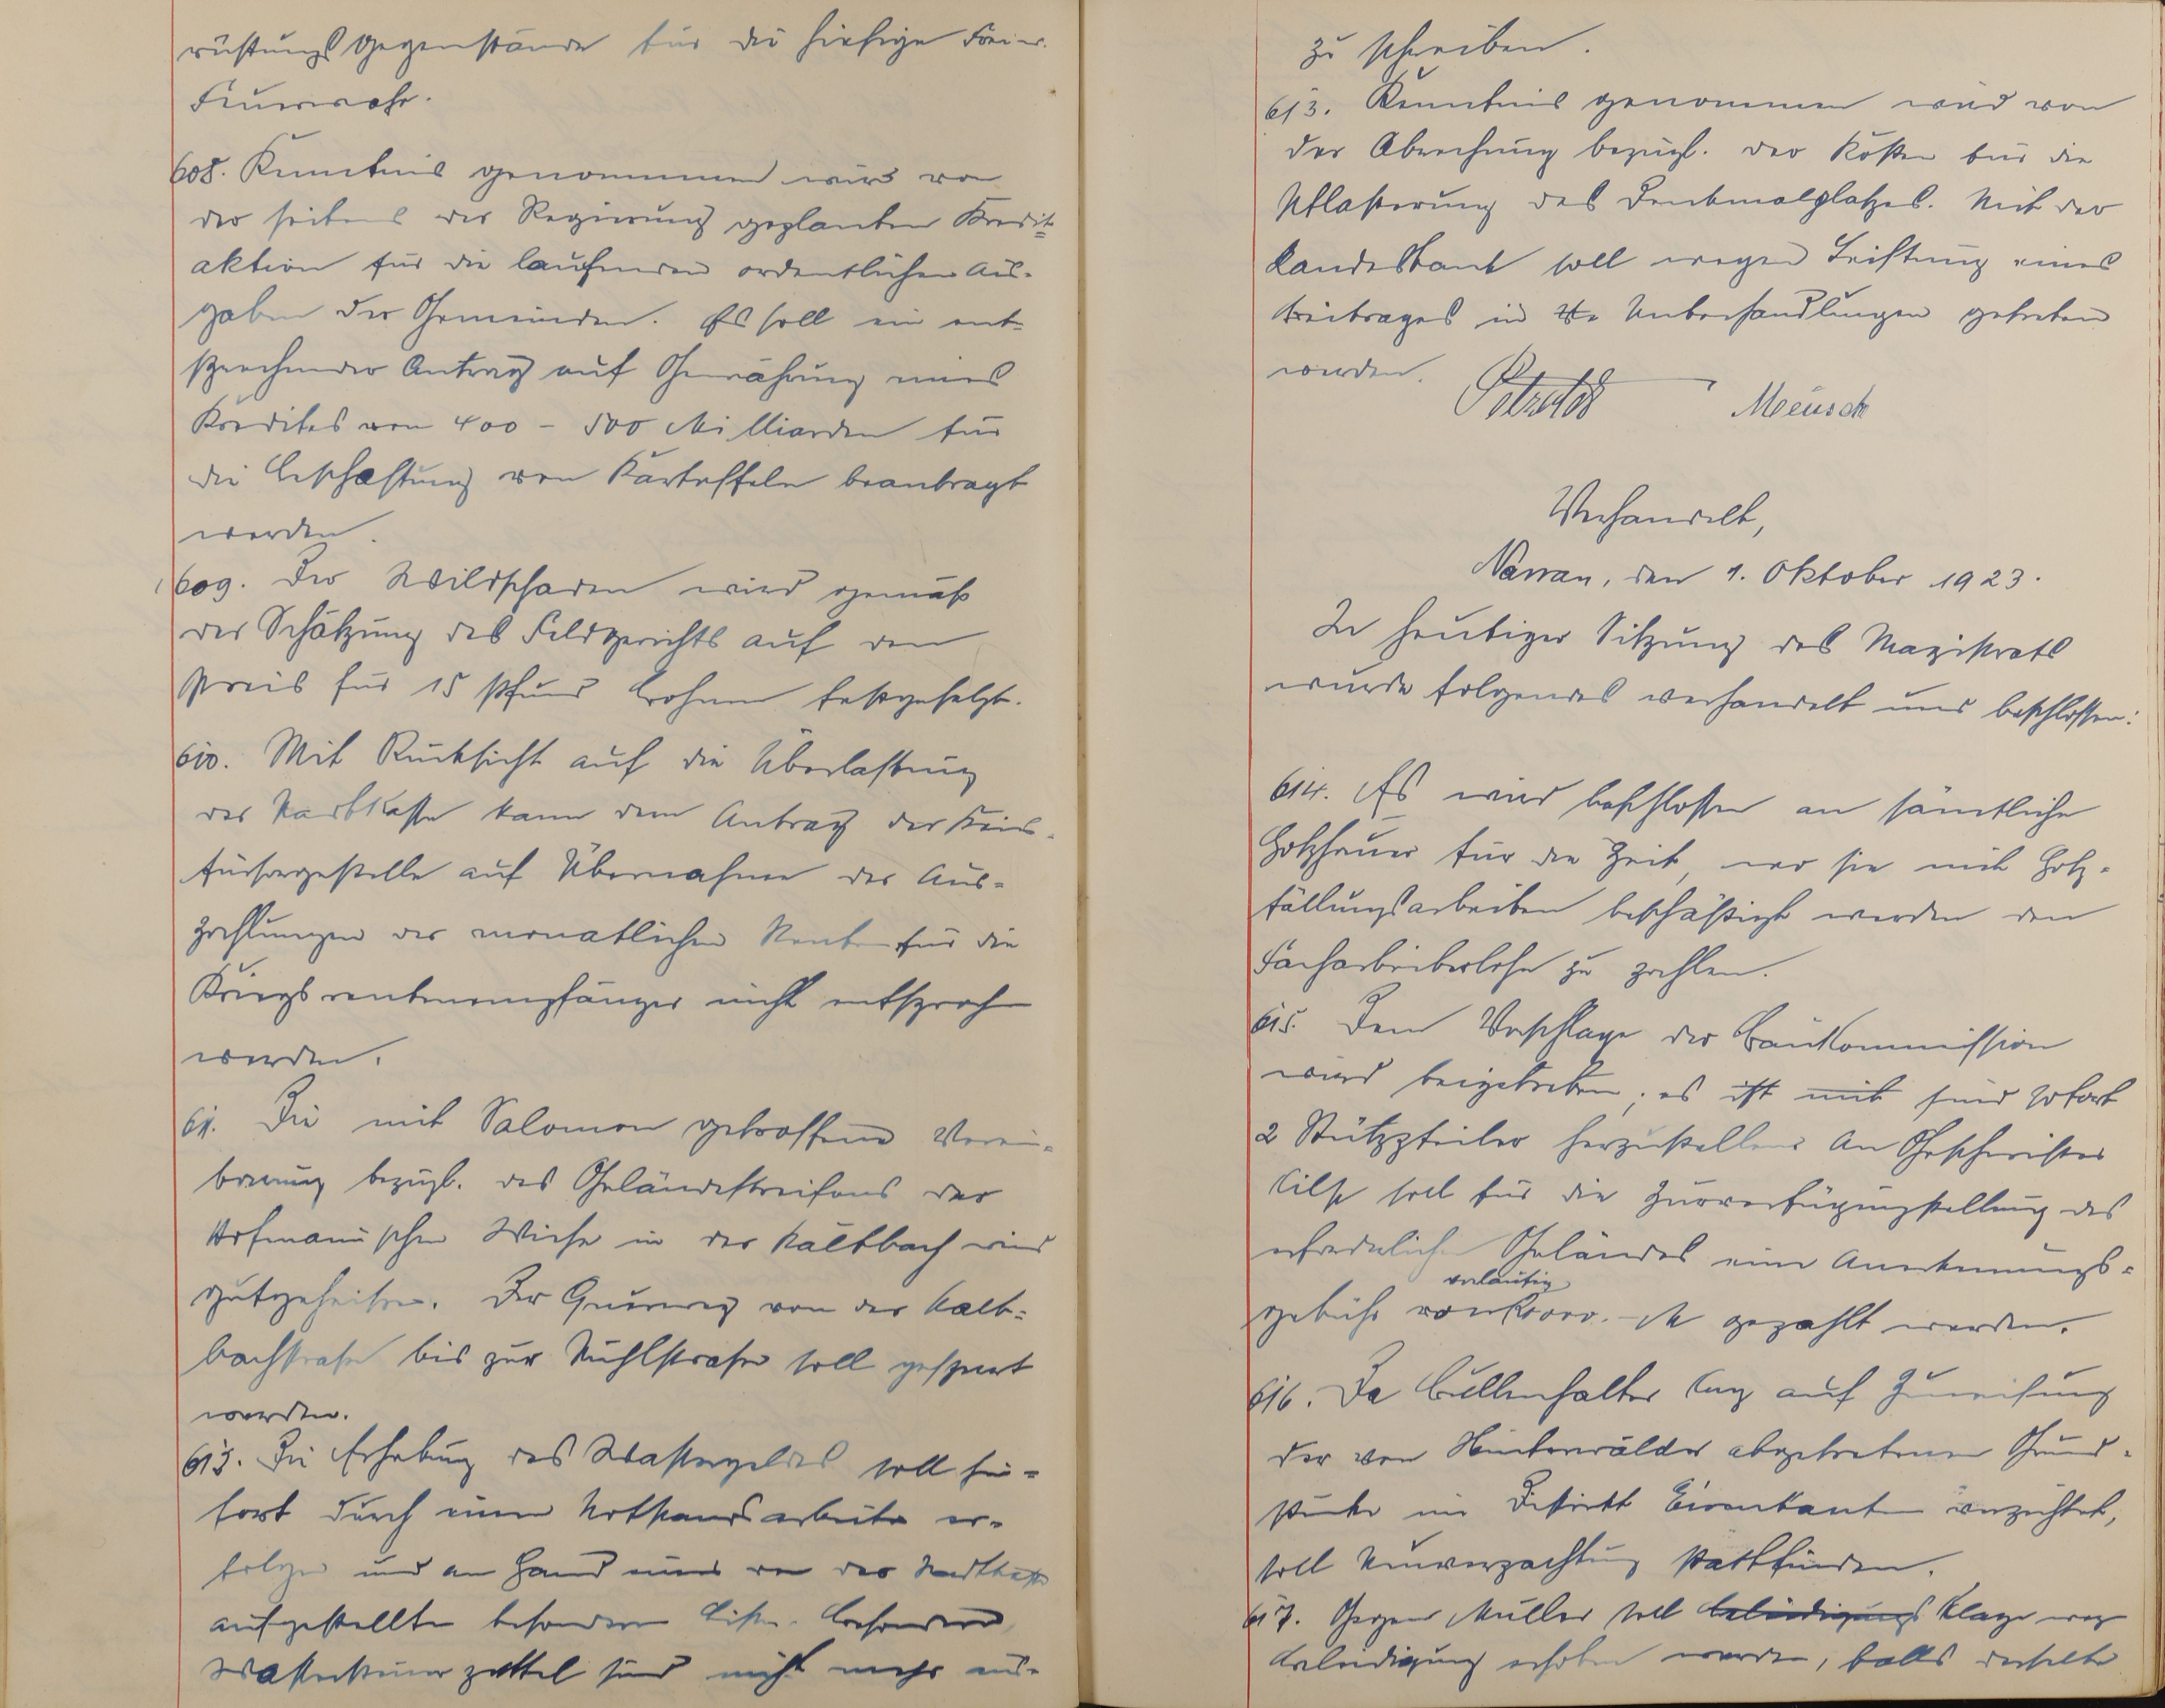 rüstungsgegenstände für die hiesige Freiw.
Feuerwehr.
608. Kenntnis genommen wird von
der seitens der Regierung geplanten Kredit-
aktion für die laufenden ordentlichen Aus-
gaben der Gemeinden. Es soll ein ent-
sprechender Antrag auf Gewährung eines
Kredites von 400 - 500 Milliarden für
die Beschaffung von Kartoffeln beantragt
werden.
609. Der Wildschaden wird gemäß
der Schätzung des Feldgerichts auf den
Preis für 15 Pfund Bohnen festgesetzt.
610. Mit Rücksicht auf die Überlastung
der Stadtkasse kann dem Antrag der Kreis-
fürsorgestelle auf Übernahme der Aus-
zahlungen der monatlichen Renten für die
Kriegsrentenempfänger nicht entsprochen
werden.
611. Die mit Salomon getroffene Verein-
barung bezügl. des Geländestreifens der
Hofmann'schen Wiese in der Kaltbach wird
gutgeheißen. Der Querweg von der Kalt-
bachstraße bis zur Mühlstraße soll gesperrt
werden.
612. Die Erhebung des Wassergeldes soll hin-
fort durch einen Notstandsarbeiter er-
folgen und an Hand einer von der Stadtkasse
aufgestellten besonderen Liste. Besondere
Wassersteuerzettel sind nicht mehr aus-
zu schreiben.
613. Kenntnis genommen wird von
der Abrechnung bezügl. der Kosten für die
Pflasterung des Denkmalplatzes. Mit der
Landesbank soll wegen Leistung eines
Beitrages in Unterhandlungen getreten
werden.
Meusch
Verhandelt,
Nassau, den 1. Oktober 1923.
In heutiger Sitzung des Magistrats
wurde folgendes verhandelt und beschlossen:
614. Es wird beschlossen an sämtliche
Holzhauer für die Zeit, wo sie mit Holz-
fällungsarbeiten beschäftigt werden den
Facharbeiterlohn zu zahlen.
615. Dem Vorschlage der Baukommission
wird beigetreten; es ist mit sind sofort
2 Stützpfeiler herzustellen. An Geschwister
soll für die Zurverfügungstellung des
erforderlichen Geländes eine Anerkennungs-
vorläufig
gebühr von M gezahlt werden.
616. Da Bullenhalter auf Zuweisung
der von Hinterwälder abgetretenen Grund-
stücke im Distrikt verzichtet,
soll Neuverpachtung stattfinden.
617. Gegen Müller soll beleidigungs Klage weg.
Beleidigung erhoben werden, falls derselbe